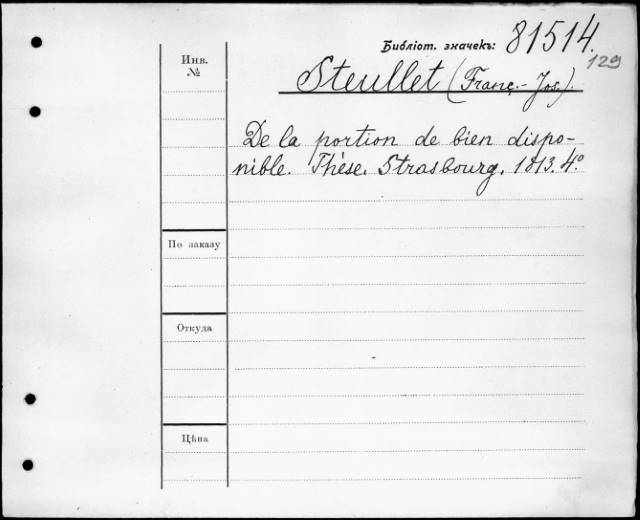 Библіот. значекъ: 81514.
129
Инв.
№
Steullet (Franç.-Jos.).
De la portion de bien dispo-
nible. Thèse. Strasbourg. 1813. 4º
По заказу
Откуда
Цѣна